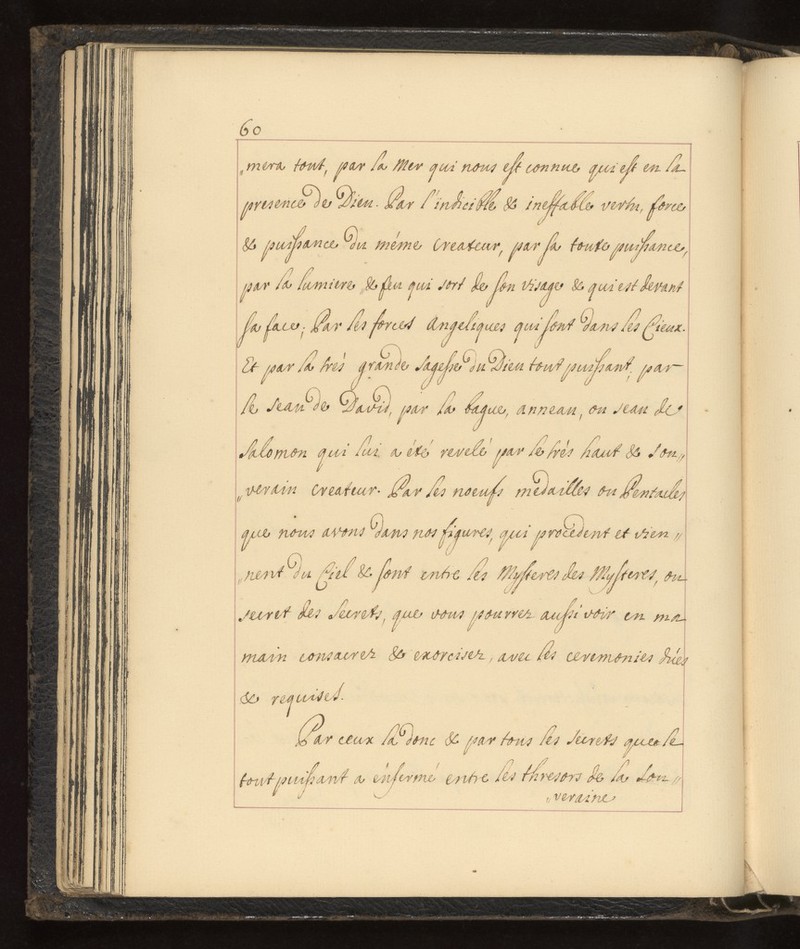 60
„mera tout, par la Mer qui nous est connue qui est en la
presence de Dieu. Par l'indicible & ineffable vertu, force
& puissance du méme Createur, par sa toute puissance,
par la lumiere, & feu qui sort de son visage & qui est devant
sa face; Par les forces Angeliques qui sont dans les Cieux.
Et par la trés grande sagesse du Dieu tout puissant; par
le seau de David, par la bague, anneau, ou seau de
Salomon qui lui a été revelé par le trés haut & sou„
„verain createur. Par les noeufs medailles ou Pentacles
que nous avons dans nos figures, qui procedent et vien„
„nent du Ciel & sont entre les Mysteres des Mysteres, ou
secret des Secrets, que vous pourrez aussi voir en ma
main consacrez & exorcisez, avec les ceremonies dúes
& requises.
Par ceux là donc & par tous les secrets que le
tout puissant a énfermé entre les thresors de la Sou„
„veraine